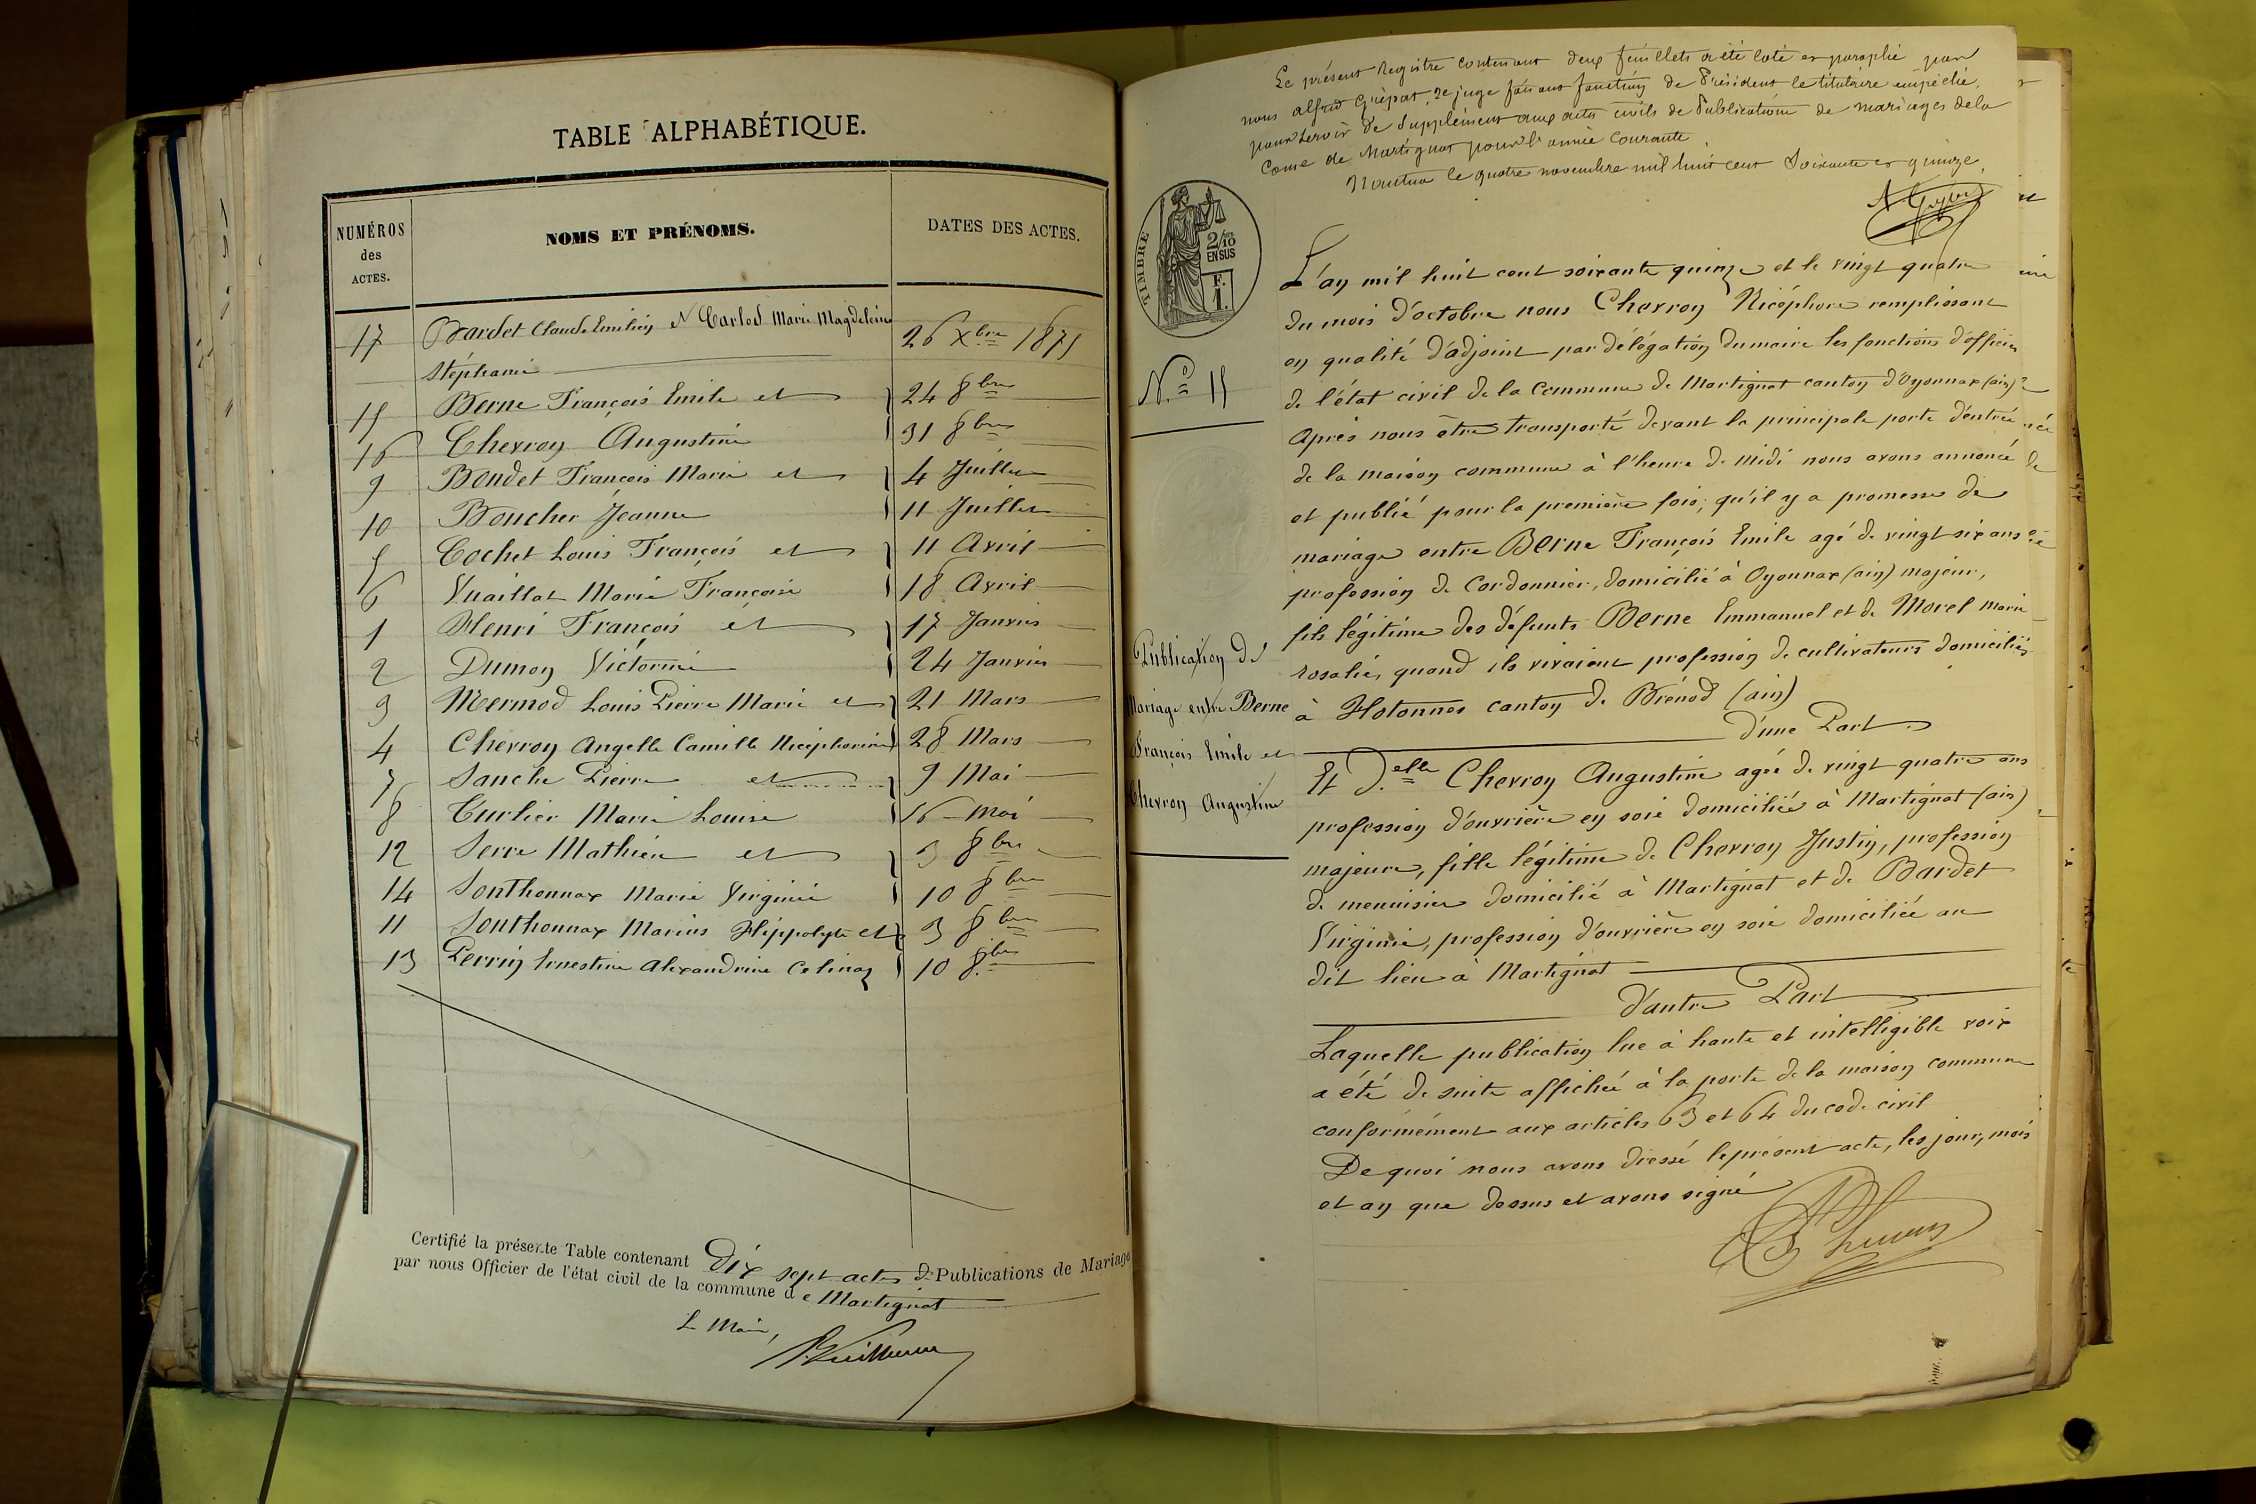 TABLE ALPHABÉTIQUE.
NUMÉROS des ACTES. NOMS ET PRÉNOMS. DATES DES ACTES.
17 Bardet Claude Emilien et Carlod Marie Magdeleine
Stéphanie 26 Xbre 1875
15 Berne François Emile et 24 8bre
16 Chevron Augustine 31 8bre
9 Bondet François Marie et 4 Juillet
10 Boucher Jeanne 11 Juillet
5 Cochet Louis François et 11 Avril
6 Vuaillat Marie Françoise 18 Avril
1 Henri François et 17 Janvier
2 Dumon Victorine 24 Janvier
3 Mermod Louis Pierre Marie et 21 Mars
4 Chevron Angelle Camille Nicéphorine 28 Mars
7 Sanche Pierre et 9 Mai
8 Curlier Marie Louise 16 Mai
12 Serre Mathieu et 3 8bre
14 Sonthonnax Marie Virginie 10 8bre
11 Sonthonnax Marius Hippolyte et 3 8bre
13 Perrin Ernestine Alexandrine Celina 10 8bre
Certifié la présente Table contenant Dix sept actes de Publications de Mariage
par nous Officier de l'état civil de la commune de Martignat
Le Maire,
Le présent Registre contenant deux feuillets a été coté et paraphé par
nous alfred Grépat, 2e juge faisant fonctions de Président le titulaire empêché,
pour servir de Supplément aux actes civils de Publications de mariages de la
Comne de Martignat pour l'année courante
Nantua le quatre novembre mil huit cent Soixante et quinze.
TIMBRE
2/10
EN SUS
F.
1.
L'an mil huit cent soixante quinze et le vingt quatre
du mois d'octobre nous Chevron Nicéphore remplissant
en qualité d'adjoint par délégation du maire les fonctions d'officier
de l'état civil de la Commune de Martignat canton d'Oyonnax (ain)
Après nous être transporté devant la principale porte d'entrée
de la maison commune à l'heure de midi nous avons annoncé
et publié pour la première fois, qu'il y a promesse de
mariage entre Berne François Emile agé de vingt six ans
profession de Cordonnier, domicilié à Oyonnax (ain) majeur,
fils légitime des défunts Berne Emmanuel et de Morel Marie
rosalie, quand ils vivaient profession de cultivateurs domiciliés
à Hotonnes canton de Brénod (ain)
D'une Part
Et Delle Chevron Augustine agée de vingt quatre ans
profession d'ouvrière en soie domiciliée à Martignat (ain)
majeure, fille légitime de Chevron Justin, profession
de menuisier domicilié à Martignat et de Bardet
Virginie, profession d'ouvrière en soie domiciliée au
dit lieu à Martignat
D'autre Part
Laquelle publication lue à haute et intelligible voix
a été de suite affichée à la porte de la maison commune
conformément aux articles 63 et 64 du code civil
De quoi nous avons dressé le présent acte, les jour, mois
et an que dessus et avons signé
No 15
Publication de
Mariage entre Berne
François Emile et
Chevron Augustine